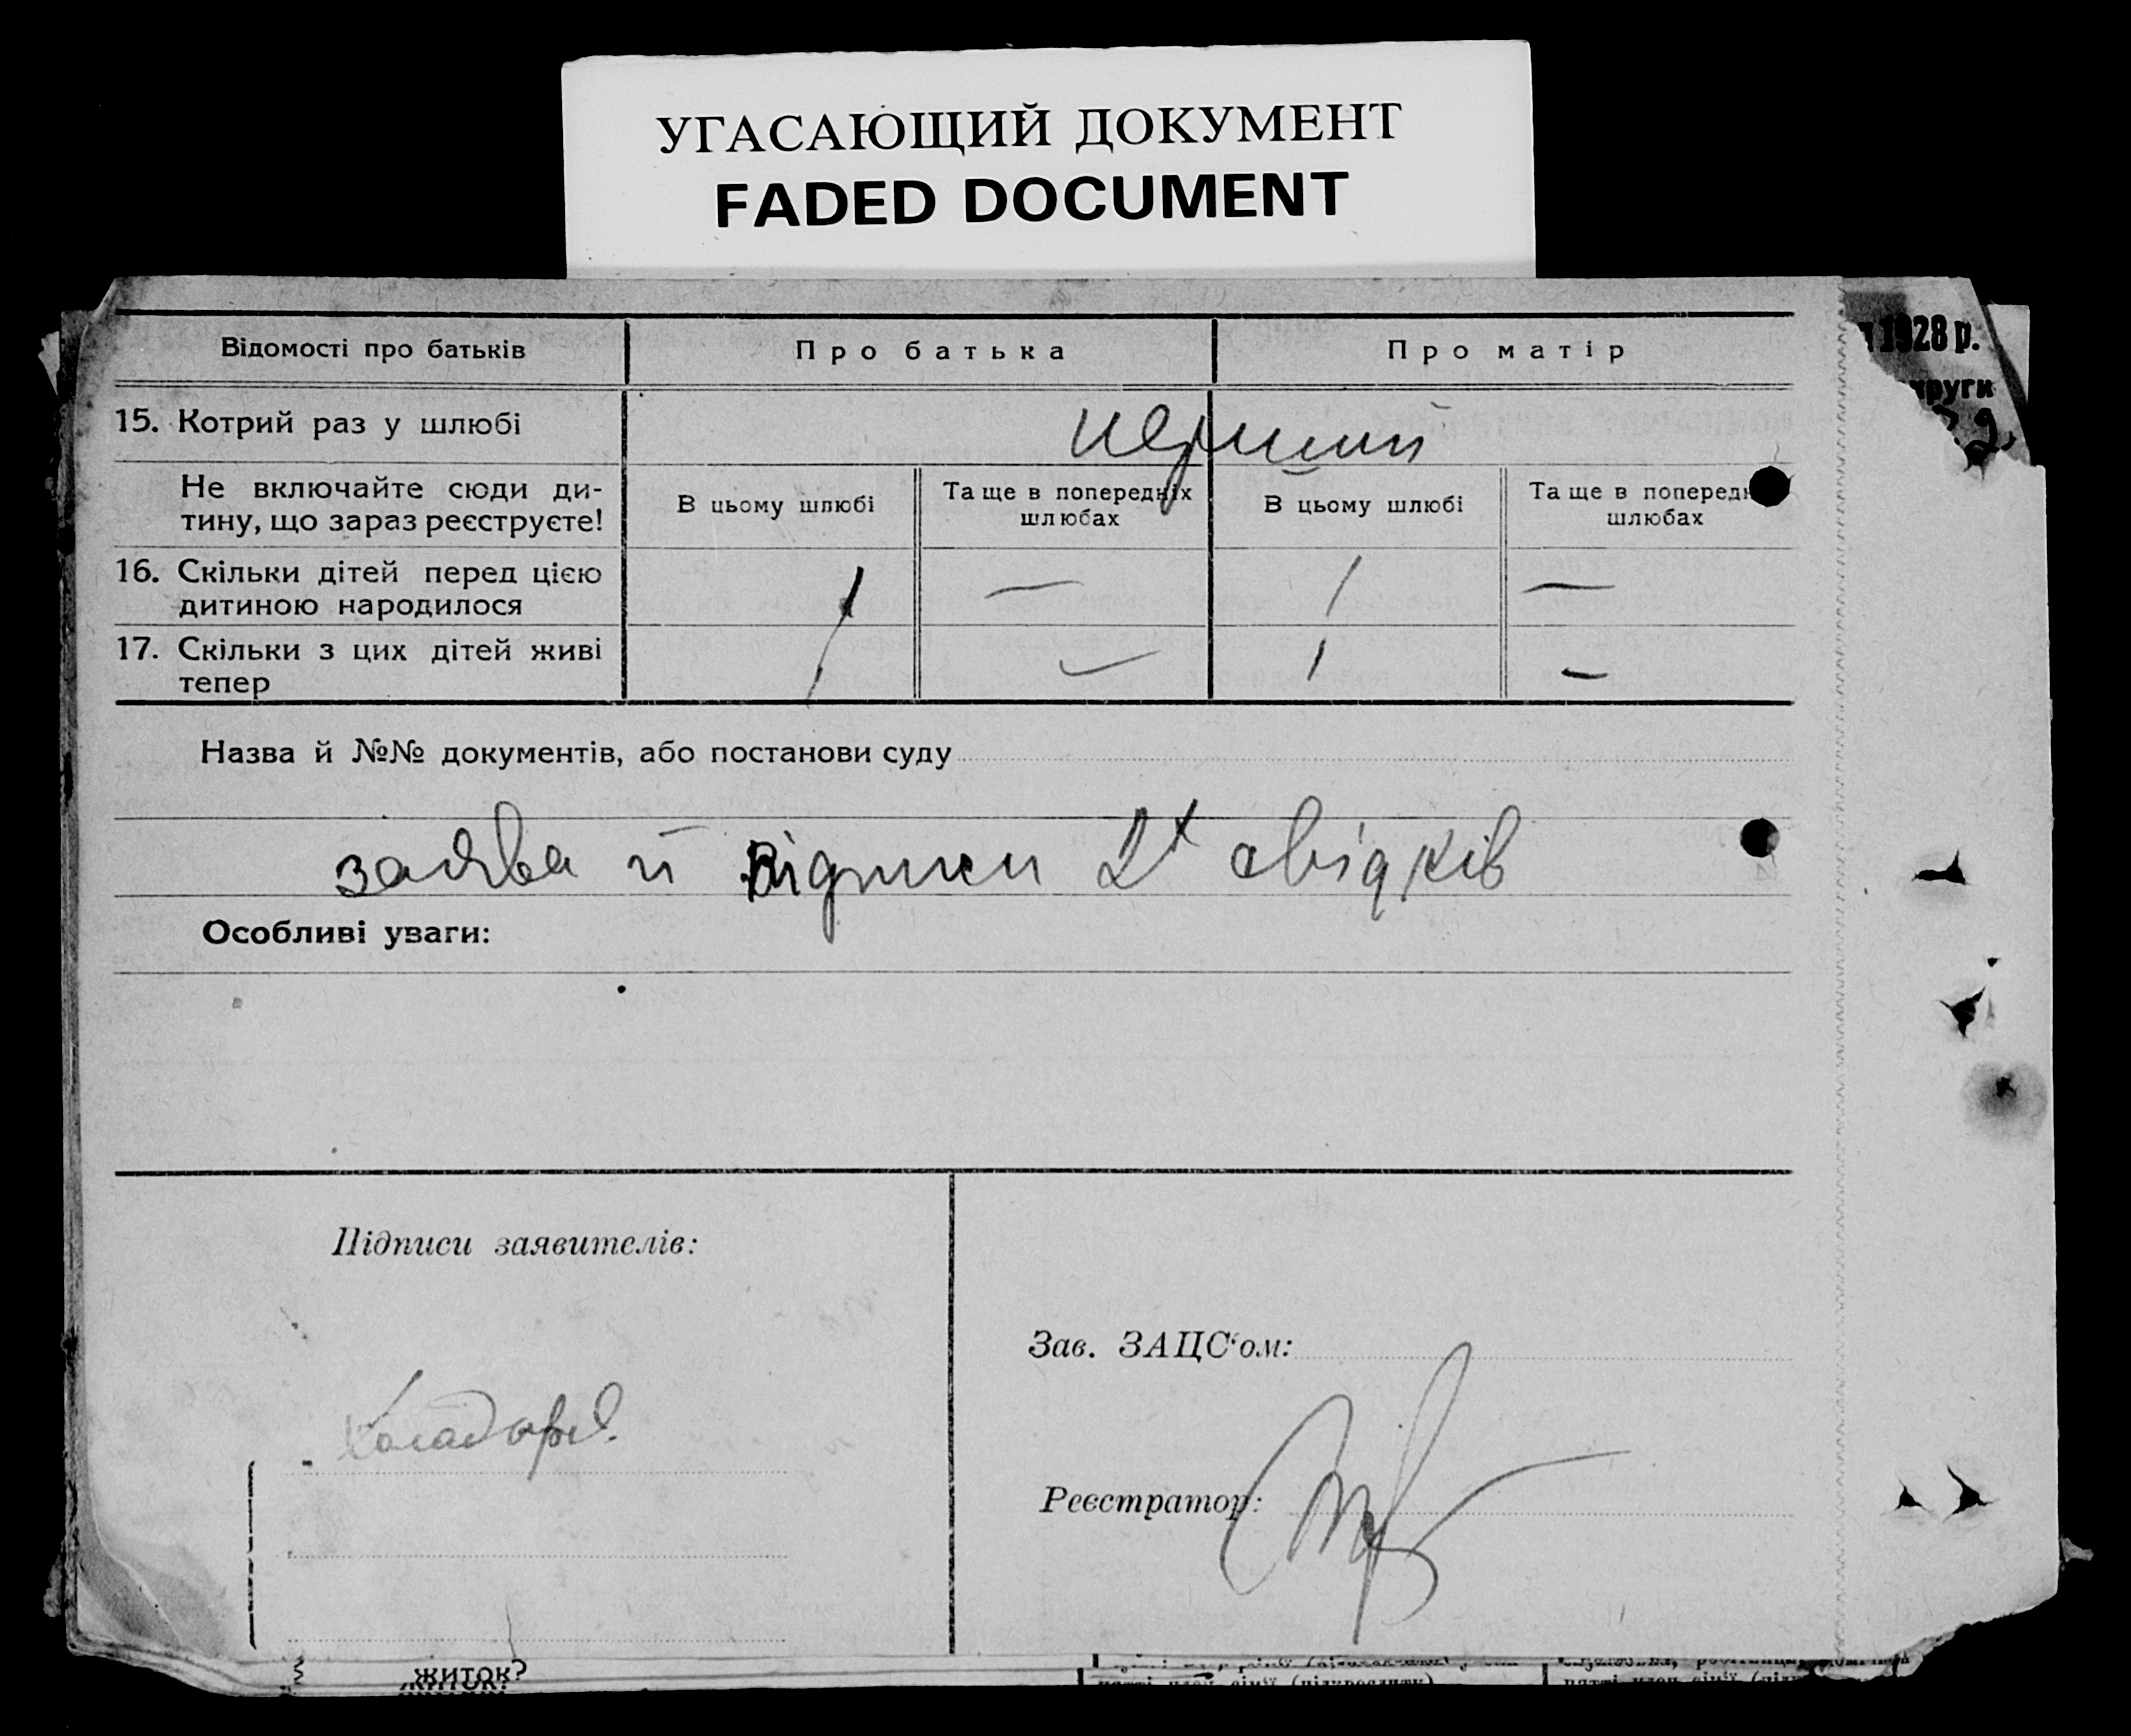 УГАСАЮЩИЙ ДОКУМЕНТ
FADED DOCUMENT
1928 р.
округи
Відомості про батьків
Про батька
Про матір
15. Котрий раз у шлюбі
перший
Не включайте сюди ди-
тину, що зараз реєструєте!
В цьому шлюбі
Та ще в попередніх
шлюбах
В цьому шлюбі
Та ще в попередн
шлюбах
16. Скільки дітей перед цією
дитиною народилося
1 — 1 —
17. Скільки з цих дітей живі
тепер
1 — 1 —
Назва й №№ документів, або постанови суду
заява й підписи 2х свідків
Особливі уваги:
Підписи заявителів:
Зав. ЗАЦС'ом:
Реєстратор:
житок?